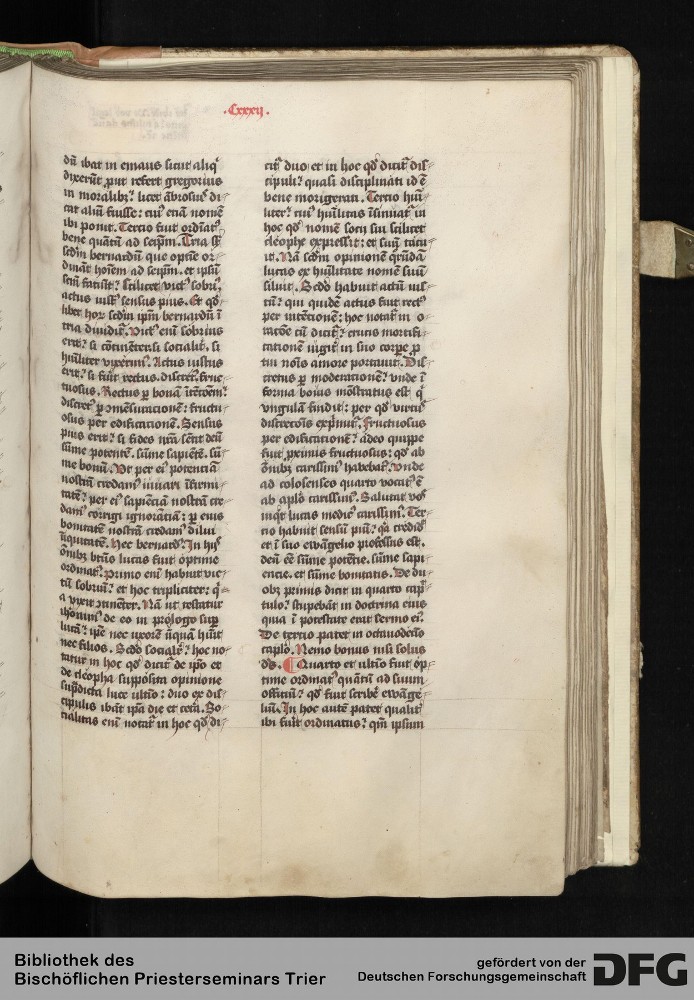 .Cxxxij.
dū ibat in emaus sicut aliq̄
dixerūt put refert gregorius
in moralibꝫ licet ābrosiꝰ di-
cat aliū fuisse: cuiꝰ etiā nomē
ibi ponit. Tercio fuit ordīatꝰ
bene quātū ad seipm̄. Tria sc̄
scdm̄ bernardū que optīe or-
dināt hoīem ad seipm̄. et ipsū
scilicet victꝰ sobriꝰ,
actus iustꝰ sensus pius. Et qd̄-
libet hoꝝ scdm̄ ipm̄ bernardū ī
tria diuidit̄. Victꝰ eni sobrius
erit: si cōtinēter si socialit̄. si
huīliter vixerimꝰ. Actus iustus
erit: si fuit rectus. discretꝰ. fruc-
tuosus. Rectus ꝑ bonā ītētōem:
discretꝰ ꝑ mēsuracionē: fructu-
osus per edificationē. Sensus
pius erit: si fides nrā sēnt deū
sūme potentē. sūme sapiētē. sū-
me bonū. Vt per eiꝰ potenciā
nostrā credamꝰ iuuari īfirmi-
tatē: per eiꝰ sapienciā nostrā cre-
damꝰ corrigi ignorātiā: ꝑ eius
bonitatē nostrā credamꝰ dilui
īiquitatē. Hec bernardꝰ. In hijs
ōnibꝫ btūs lucas fuit optime
ordinatꝰ. Primo eni habuit vic-
tū sobriū: et hoc tripliciter: q̄-
a vixit ꝯtinēter. Nā ut testatur
iheronimꝰ de eo in prologo sup
lucā: ipē nec uxorē ūquā hūit
nec filios. Scdo socialit̄: hoc no-
tatur in hoc qd̄ dicit̄ de ip̄o et
de cleopha supposita opinione
sup̄dicta luce ultīo: duo ex dis-
cipulis ibāt ip̄a die et cetā. So-
cialitas eni notat̄ in hoc qd̄ di-
cit̄ duo et in hoc qd̄ dicit̄ dis-
cipuli: quasi disciplinati id ē
bene morigerati. Tercio huī-
liter: cuiꝰ huīlitas īsinuat̄ in
hoc qd̄ nomē socij sui scilicet
cleophe expressit: et suū tacu-
it. Nā scdm̄ opinionē q̄rūdā
lucas ex huīlitate nomē suū
siluit. Scdo habuit actū ius-
tū: qui quidē actus fuit rectꝰ
per intētionē: hoc notat̄ in o-
ratōe cū dicit̄: crucis mortifi-
cationē iugit̄ in suo corpe p
tui noīs amore portauit. Dis-
cretus ꝑ moderationē: vnde ī
forma bouis mōstratus est q̄
vngulā findit: per qd̄ virtꝰ
discrecōis exp̄mit̄. Fructuosus
per edificationē: adeo quippe
fuit ꝓximis fructuosus: qd̄ ab
ōnibꝫ carissimꝰ habebat̄. Vnde
ad colosenses quarto vocat̄ ē
ab aplō carissimꝰ. Salutat vos
inq̄t lucas medicꝰ carissimꝰ. Ter-
cio habuit sensū piū: q̄a credidꝰ
et ī suo ewāgelio professus est.
deū eē sūme potētie. sūme sapi-
encie. et sūme bonitatis. De du-
obꝫ primis dicit̄ in quarto capi-
tulo: stupebāt in doctrina eius
quia ī potestate erat sermo eiꝰ.
De tercio patet in octauodecīo
caplō. Nemo bonus nisi solus
dꝰs. ¶ Quarto et ultīo fuit op-
time ordinatꝰ quātū ad suum
officiū: qd̄ fuit scribē ewāge-
liū. In hoc autē patet qualit̄
ibi fuit ordinatus: qm̄ ipsum
Bibliothek des
Bischöflichen Priesterseminars Trier
gefördert von der
Deutschen Forschungsgemeinschaft
DFG